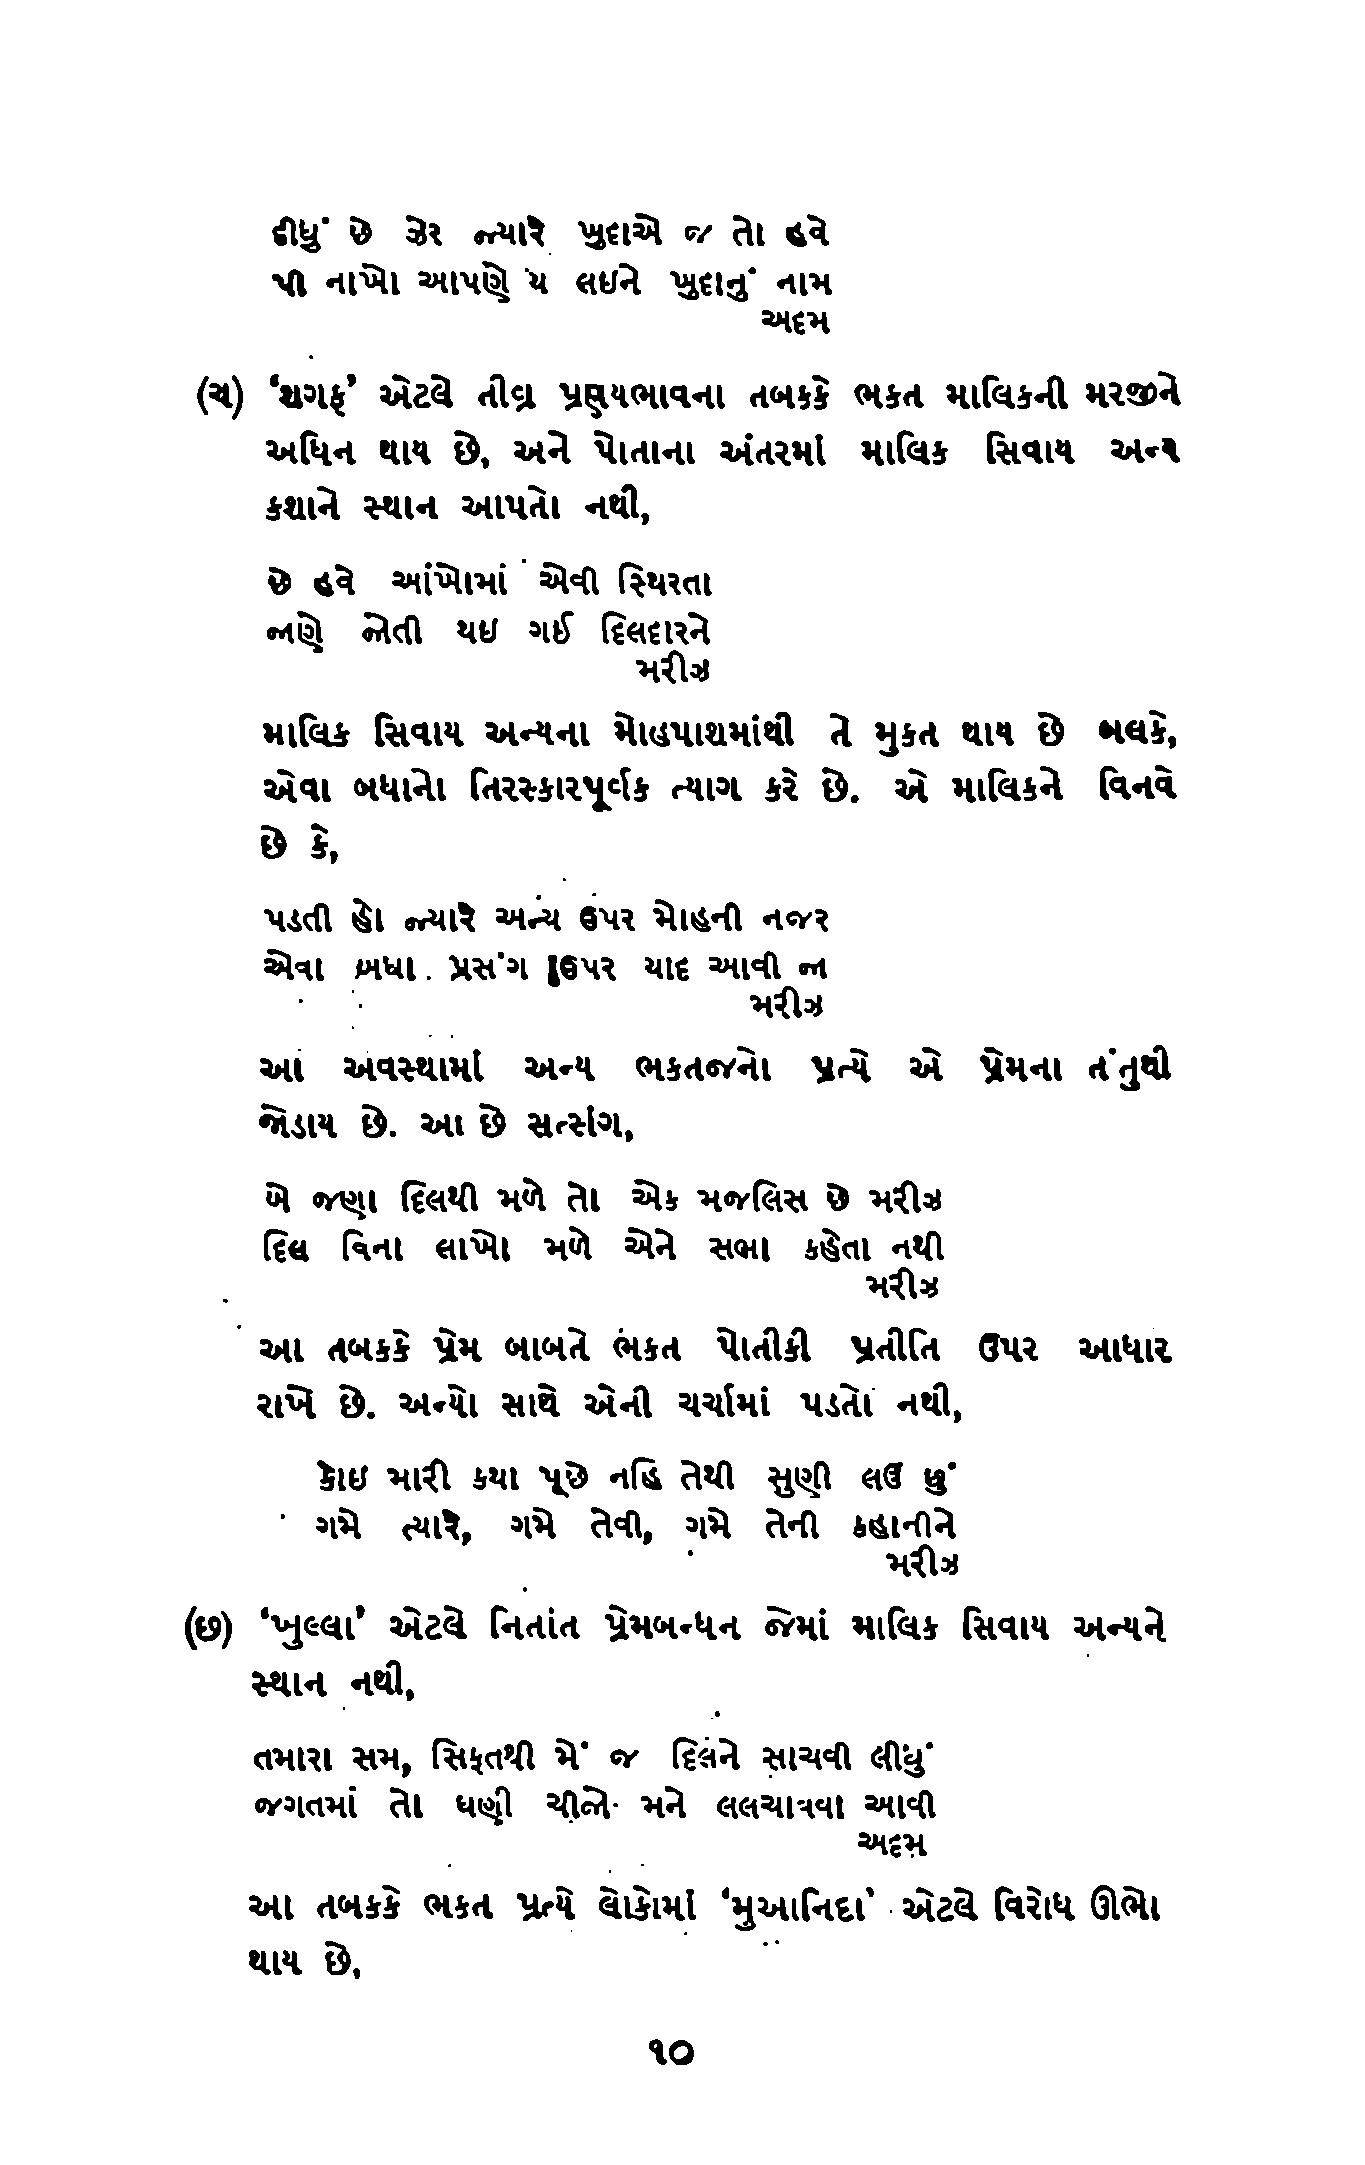 દીધું છે ઝેર જ્યારે ખુદાએ જ તો હવે
પી નાખો આપણે ય લઇને ખુદાનું નામ
અદમ
(ચ) ‘શગફ’ એટલે તીવ્ર પ્રણયભાવના તબક્કે ભક્ત માલિકની મરજીને
અધિન થાય છે, અને પોતાના અંતરમાં માલિક સિવાય અન્ય
કશાને સ્થાન આપતો નથી,
છે હવે આંખોમાં એવી સ્થિરતા
જાણે જોતી થઇ ગઈ દિલદારને
મરીઝ
માલિક સિવાય અન્યના મોહપાશમાંથી તે મુક્ત થાય છે બલકે,
એવા બધાનો તિરસ્કારપૂર્વક ત્યાગ કરે છે. એ માલિકને વિનવે
છે કે,
પડતી હો જ્યારે અન્ય ઉપર મોહની નજર
એવા બધા પ્રસંગ ઉપર યાદ આવી જા
મરીઝ
આ અવસ્થામાં અન્ય ભક્તજનો પ્રત્યે એ પ્રેમના તંતુથી
જોડાય છે. આ છે સત્સંગ,
બે જણા દિલથી મળે તો એક મજલિસ છે મરીઝ
દિલ વિના લાખો મળે એને સભા કહેતા નથી
મરીઝ
આ તબક્કે પ્રેમ બાબતે ભક્ત પોતીકી પ્રતીતિ ઉપર આધાર
રાખે છે. અન્યો સાથે એની ચર્ચામાં પડતો નથી,
કોઇ મારી કથા પૂછે નહિ તેથી સુણી લઉં છું
ગમે ત્યારે, ગમે તેવી, ગમે તેની કહાનીને
મરીઝ
(છ) ‘ખુલ્લા’ એટલે નિતાંત પ્રેમબન્ધન જેમાં માલિક સિવાય અન્યને
સ્થાન નથી,
તમારા સમ, સિફતથી મેં જ દિલને સાચવી લીધું
જગતમાં તો ઘણી ચીજો મને લલચાવવા આવી
અદમ
આ તબક્કે ભક્ત પ્રત્યે લોકોમાં ‘મુઆનિદા’ એટલે વિરોધ ઊભો
થાય છે,
૧૦